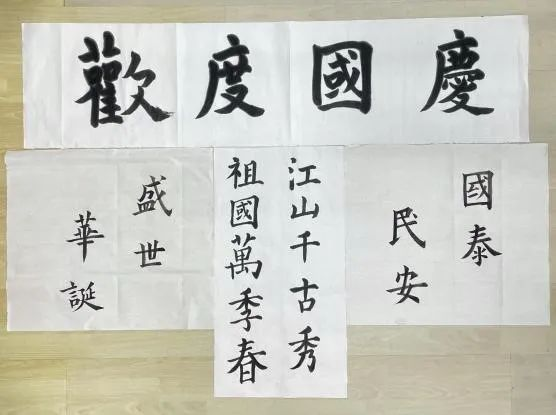 歡度國慶
國泰
民安
江山千古秀
祖國萬季春
盛世
華誕